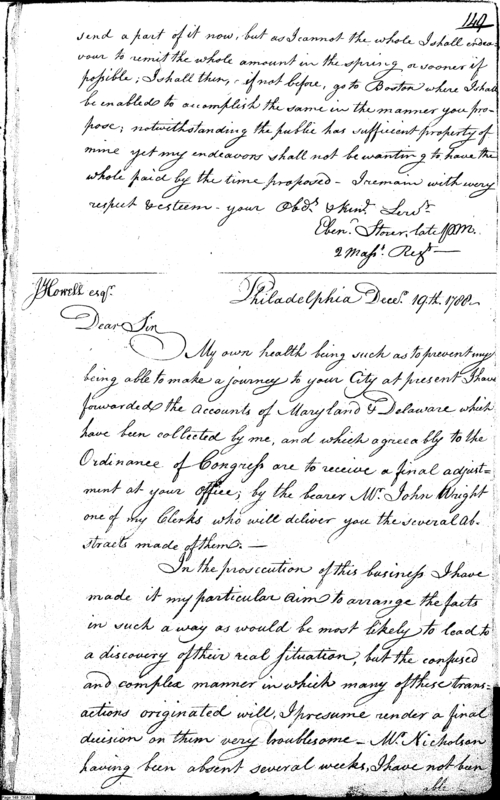 149
send a part of it now, but as I cannot the whole I shall endea-
vour to remit the whole amount in the spring or sooner if
possible; I shall then, if not before, go to Boston where I shall
be enabled to accomplish the same in the manner you pro-
pose; notwithstanding the public has sufficient property of
mine yet my endeavors shall not be wanting to have the
whole paid by the time proposed - I remain with every
respect & esteem - your Obdt. & hum. Servt.
Ebenr. Storer, late PM.
2 Masst. Regt. —
J Howell esqr.
Philadelphia Decr. 19th. 1788.
Dear Sir
My own health being such as to prevent my
being able to make a journey to your City at present I have
forwarded the accounts of Maryland & Delaware which
have been collected by me, and which agreeably to the
Ordinance of Congress are to receive a final adjust=
ment at your office; by the bearer Mr. John Wright
one of my Clerks who will deliver you the several ab-
stracts made of them. —
In the prosecution of this business I have
made it my particular aim to arrange the facts
in such a way as would be most likely to lead to
a discovery of their real situation, but the confused
and complex manner in which many of these trans-
actions originated will, I presume render a final
decision on them very troublesome - Mr. Nicholson
having been absent several weeks, I have not been
able